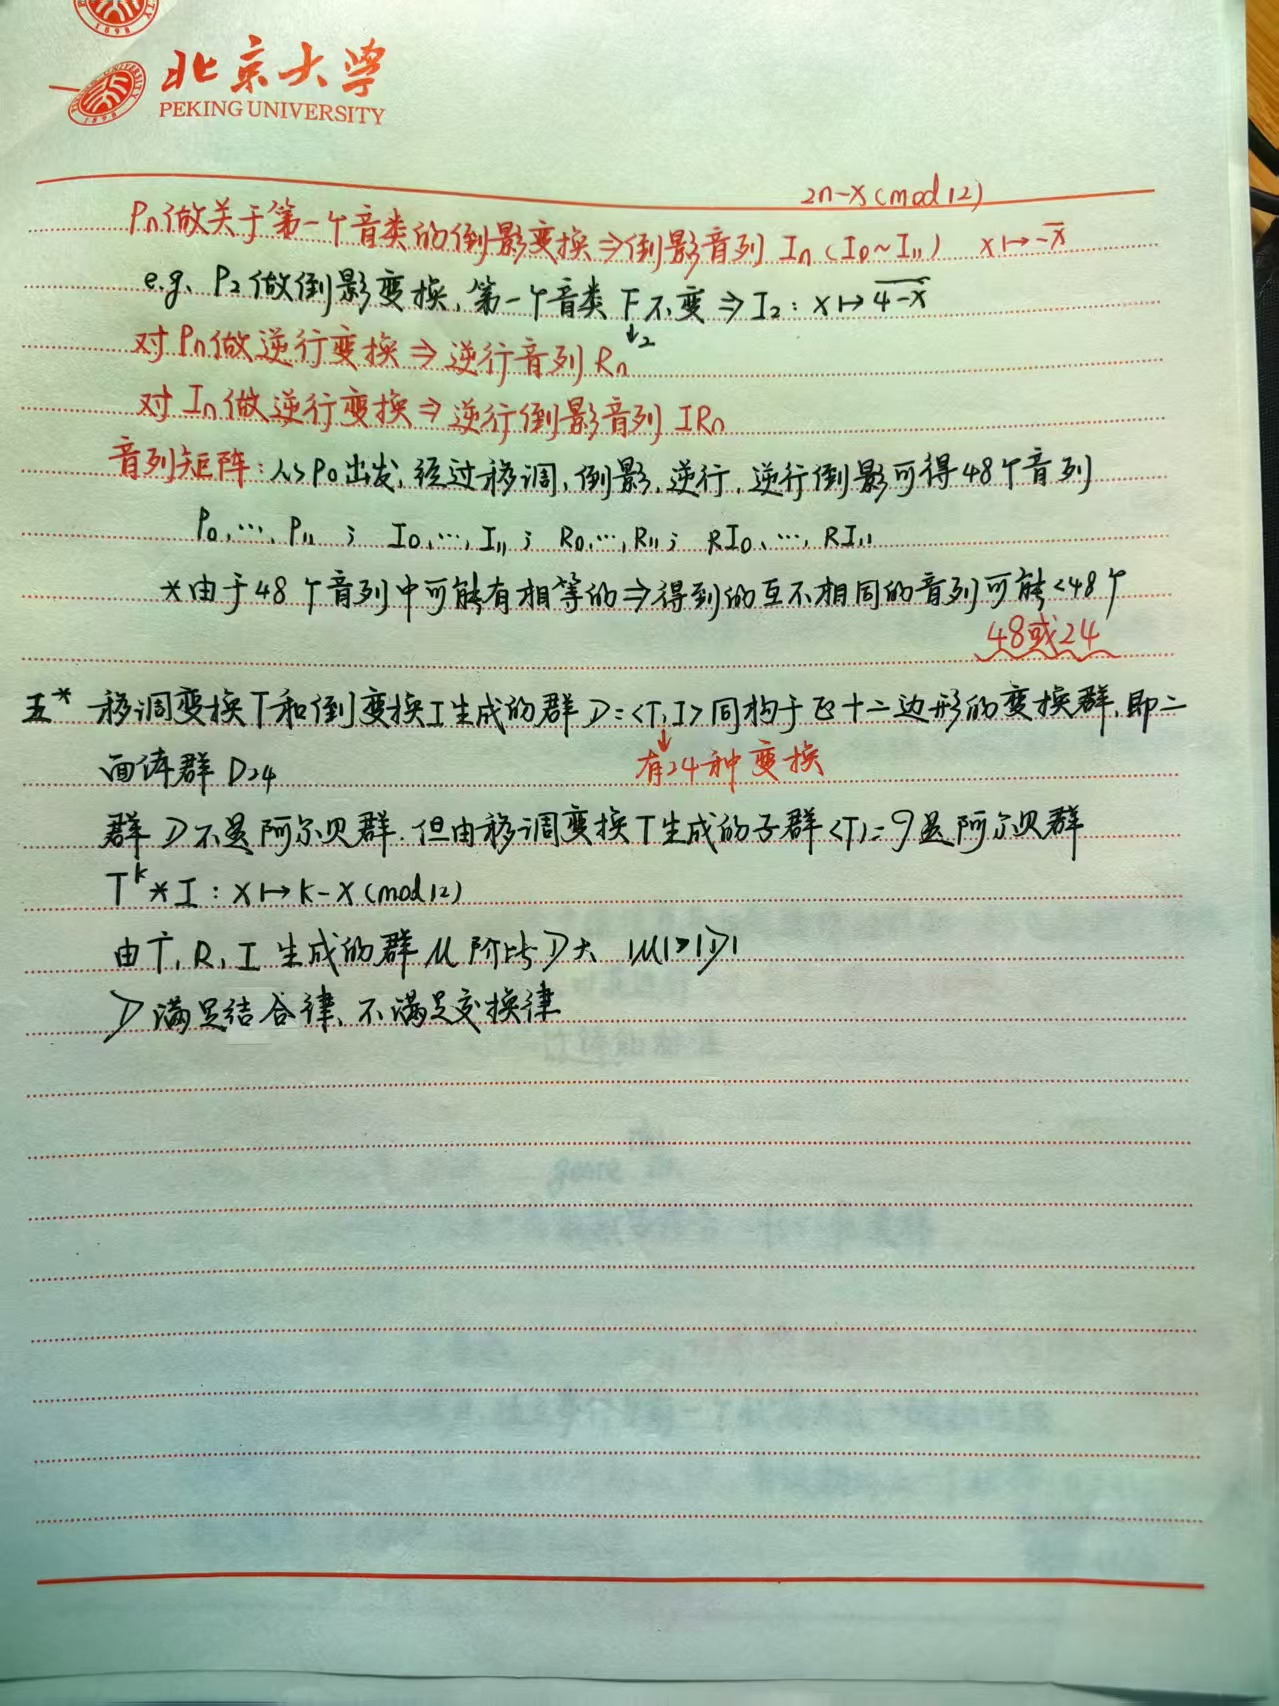 北京大学
PEKING UNIVERSITY
2n-x(mod 12)
Pn做关于第一个音类的倒影变换⇒倒影音列 In (I0~I11) x↦-x̄
e.g. P2做倒影变换,第一个音类 F不变⇒I2: x↦\overline{4-x}
↓2
对Pn做逆行变换⇒逆行音列Rn
对In做逆行变换⇒逆行倒影音列IRn
音列矩阵:从P0出发,经过移调,倒影,逆行,逆行倒影可得48个音列
P0,…,P11; I0,…,I11; R0,…,R11; RI0,…,RI11
*由于48个音列中可能有相等的⇒得到的互不相同的音列可能<48个
48或24
五* 移调变换T和倒变换I生成的群D=<T,I>同构于正十二边形的变换群,即二
↓
有24种变换
面体群D24
群D不是阿尔贝群.但由移调变换T生成的子群<T>=𝒯是阿尔贝群
T^k*I: x↦k-x(mod 12)
由T,R,I生成的群M阶比D大 |M|>|D|
D满足结合律、不满足交换律